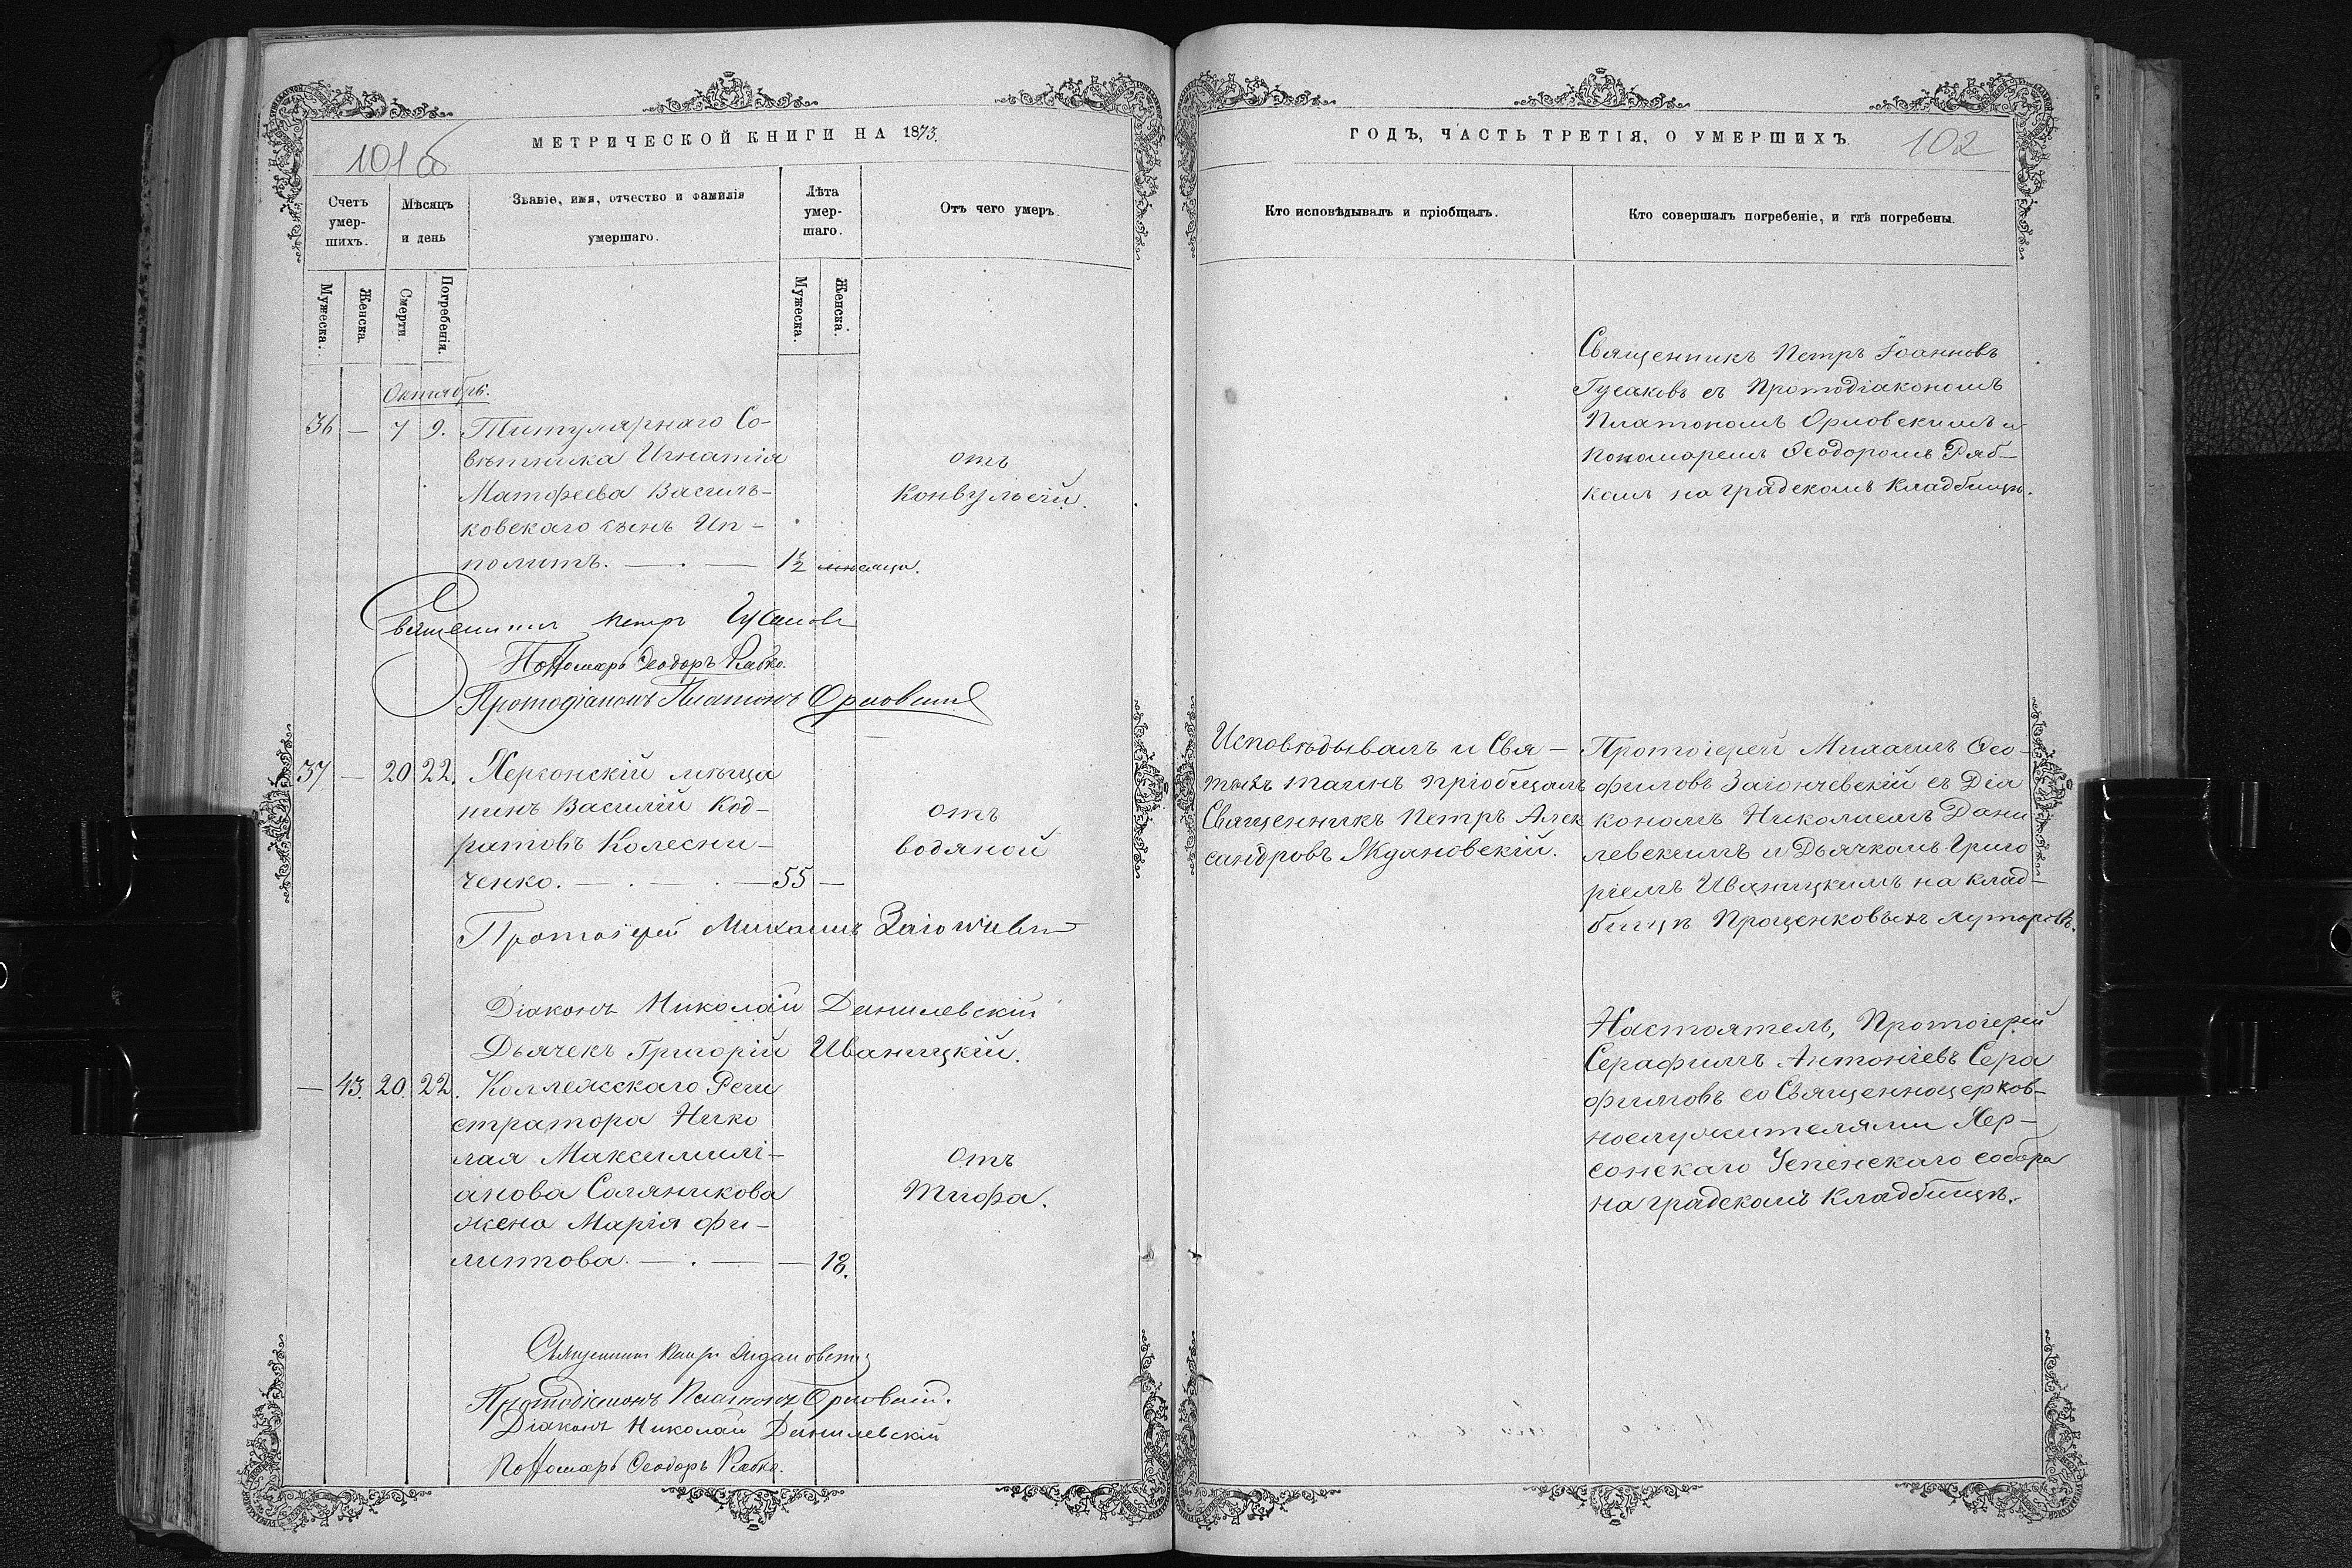 МЕТРИЧЕСКОЙ КНИГИ НА 1873.
101 об
Счетъ умер-шихъ.
Мѣсяцъ и день
Званіе, имя, отчество и фамилія умершаго.
Лѣта умер-шаго.
Отъ чего умеръ.
Мужеска.
Женска.
Смерти.
Погребенія.
Мужеска.
Женска.
Октябрь.
36 — 7 9. Титулярнаго Со-
вѣтника Игнатія отъ
Матфеева Василь- Конвульсій.
ковскаго сынъ Ип-
политъ. — . — 1½ мѣсяца.
Священникъ Петръ Гусаковъ
Пономарь Ѳеодоръ Рябко.
Протодіаконъ Платонъ Орловскій
37 — 20 22. Херсонскій мѣща
нинъ Василій Код- отъ
ратовъ Колесни- водяной
ченко. — . — . — 55 —
Протоіерей Михаилъ
Діаконъ Николай Данилевскій
Дьячекъ Григорій Иваницкій.
— 43. 20. 22. Коллежскаго Реги
стратора Нико
лая Максимилі- отъ
анова Соляникова Тифа.
жена Марія Фи-
липпова. — . — — 18.
Священникъ Петръ Ждановскій
Протодіаконъ Платонъ Орловскій.
Діаконъ Николай Данилевскій
Пономарь Ѳеодоръ Рябко.
ГОДЪ, ЧАСТЬ ТРЕТІЯ, О УМЕРШИХЪ.
102
Кто исповѣдывалъ и пріобщалъ.
Кто совершалъ погребеніе, и гдѣ погребены.
Священникъ Петръ Іоанновъ
Гусаковъ съ Протодіакономъ
Платономъ Орловскимъ и
Пономаремъ Ѳеодоромъ Ряб-
комъ на градскомъ кладбищѣ.
Исповѣдывалъ и Свя-
тыхъ таинъ пріобщалъ
Священникъ Петръ Алек
сандровъ Ждановскій.
Протоіерей Михаилъ Ѳео-
филовъ Заіончевскій съ Діа
кономъ Николаемъ Дани
левскимъ и Дьячкомъ Григо
ріемъ Иваницкимъ на клад-
бищѣ Проценковыхъ хуторовъ.
Настоятель, Протоіерей
Серафимъ Антоніевъ Сера
фимовъ со Священноцерков-
нослужителями Хер-
сонскаго Успенскаго собора
на градскомъ кладбищѣ.